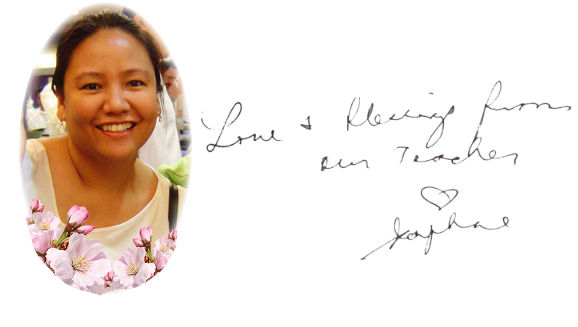 Love & Blessings from
our Teacher